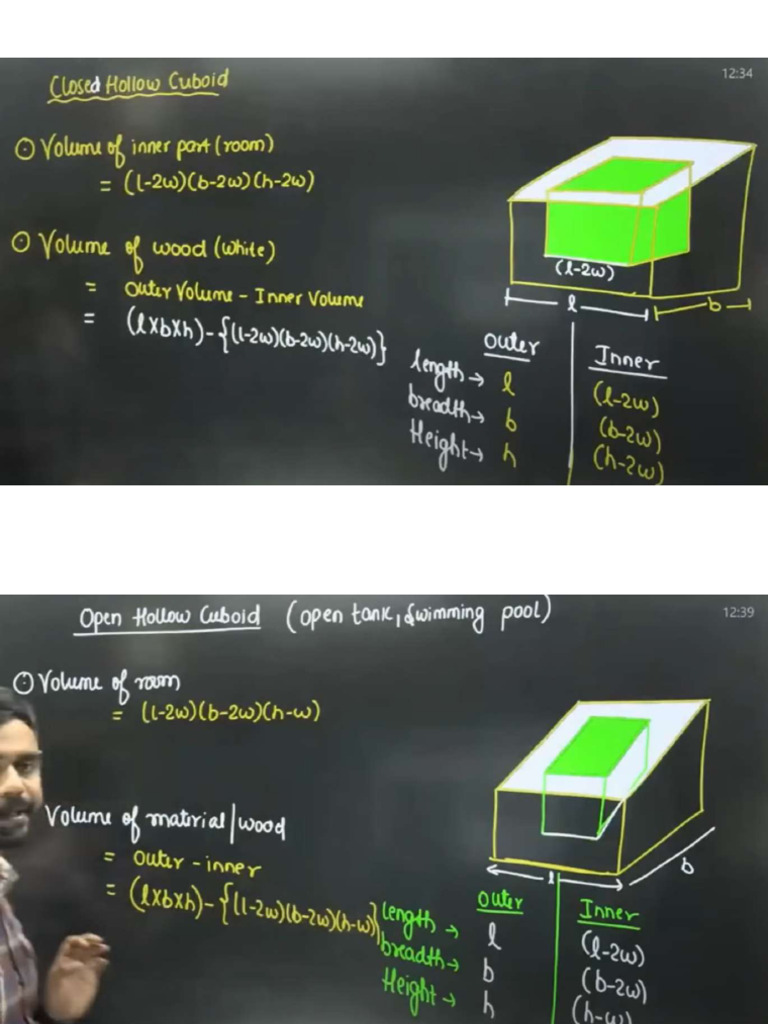 Closed Hollow Cuboid
12:34
⊙ Volume of inner part (room)
= (l-2w)(b-2w)(h-2w)
⊙ Volume of wood (white)
= Outer Volume - Inner Volume
= (l×b×h)-{(l-2w)(b-2w)(h-2w)}
(l-2w)
l
b
Outer Inner
length→ l (l-2w)
breadth→ b (b-2w)
Height→ h (h-2w)
Open Hollow Cuboid (open tank, swimming pool)
12:39
⊙ Volume of room
= (l-2w)(b-2w)(h-w)
Volume of matirial/wood
= outer - inner
= (l×b×h)-{(l-2w)(b-2w)(h-w)}
l
b
Outer Inner
length → l (l-2w)
breadth→ b (b-2w)
Height→ h (h-w)